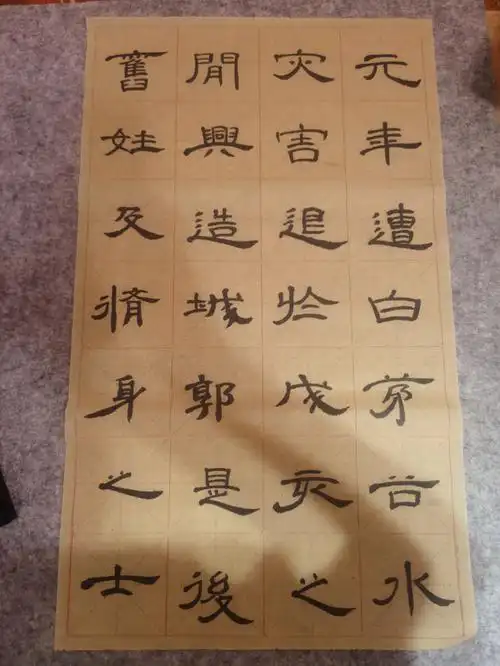 元年遭白茅谷水
灾害退於戊亥之
閒興造城郭是後
舊姓及脩身之士